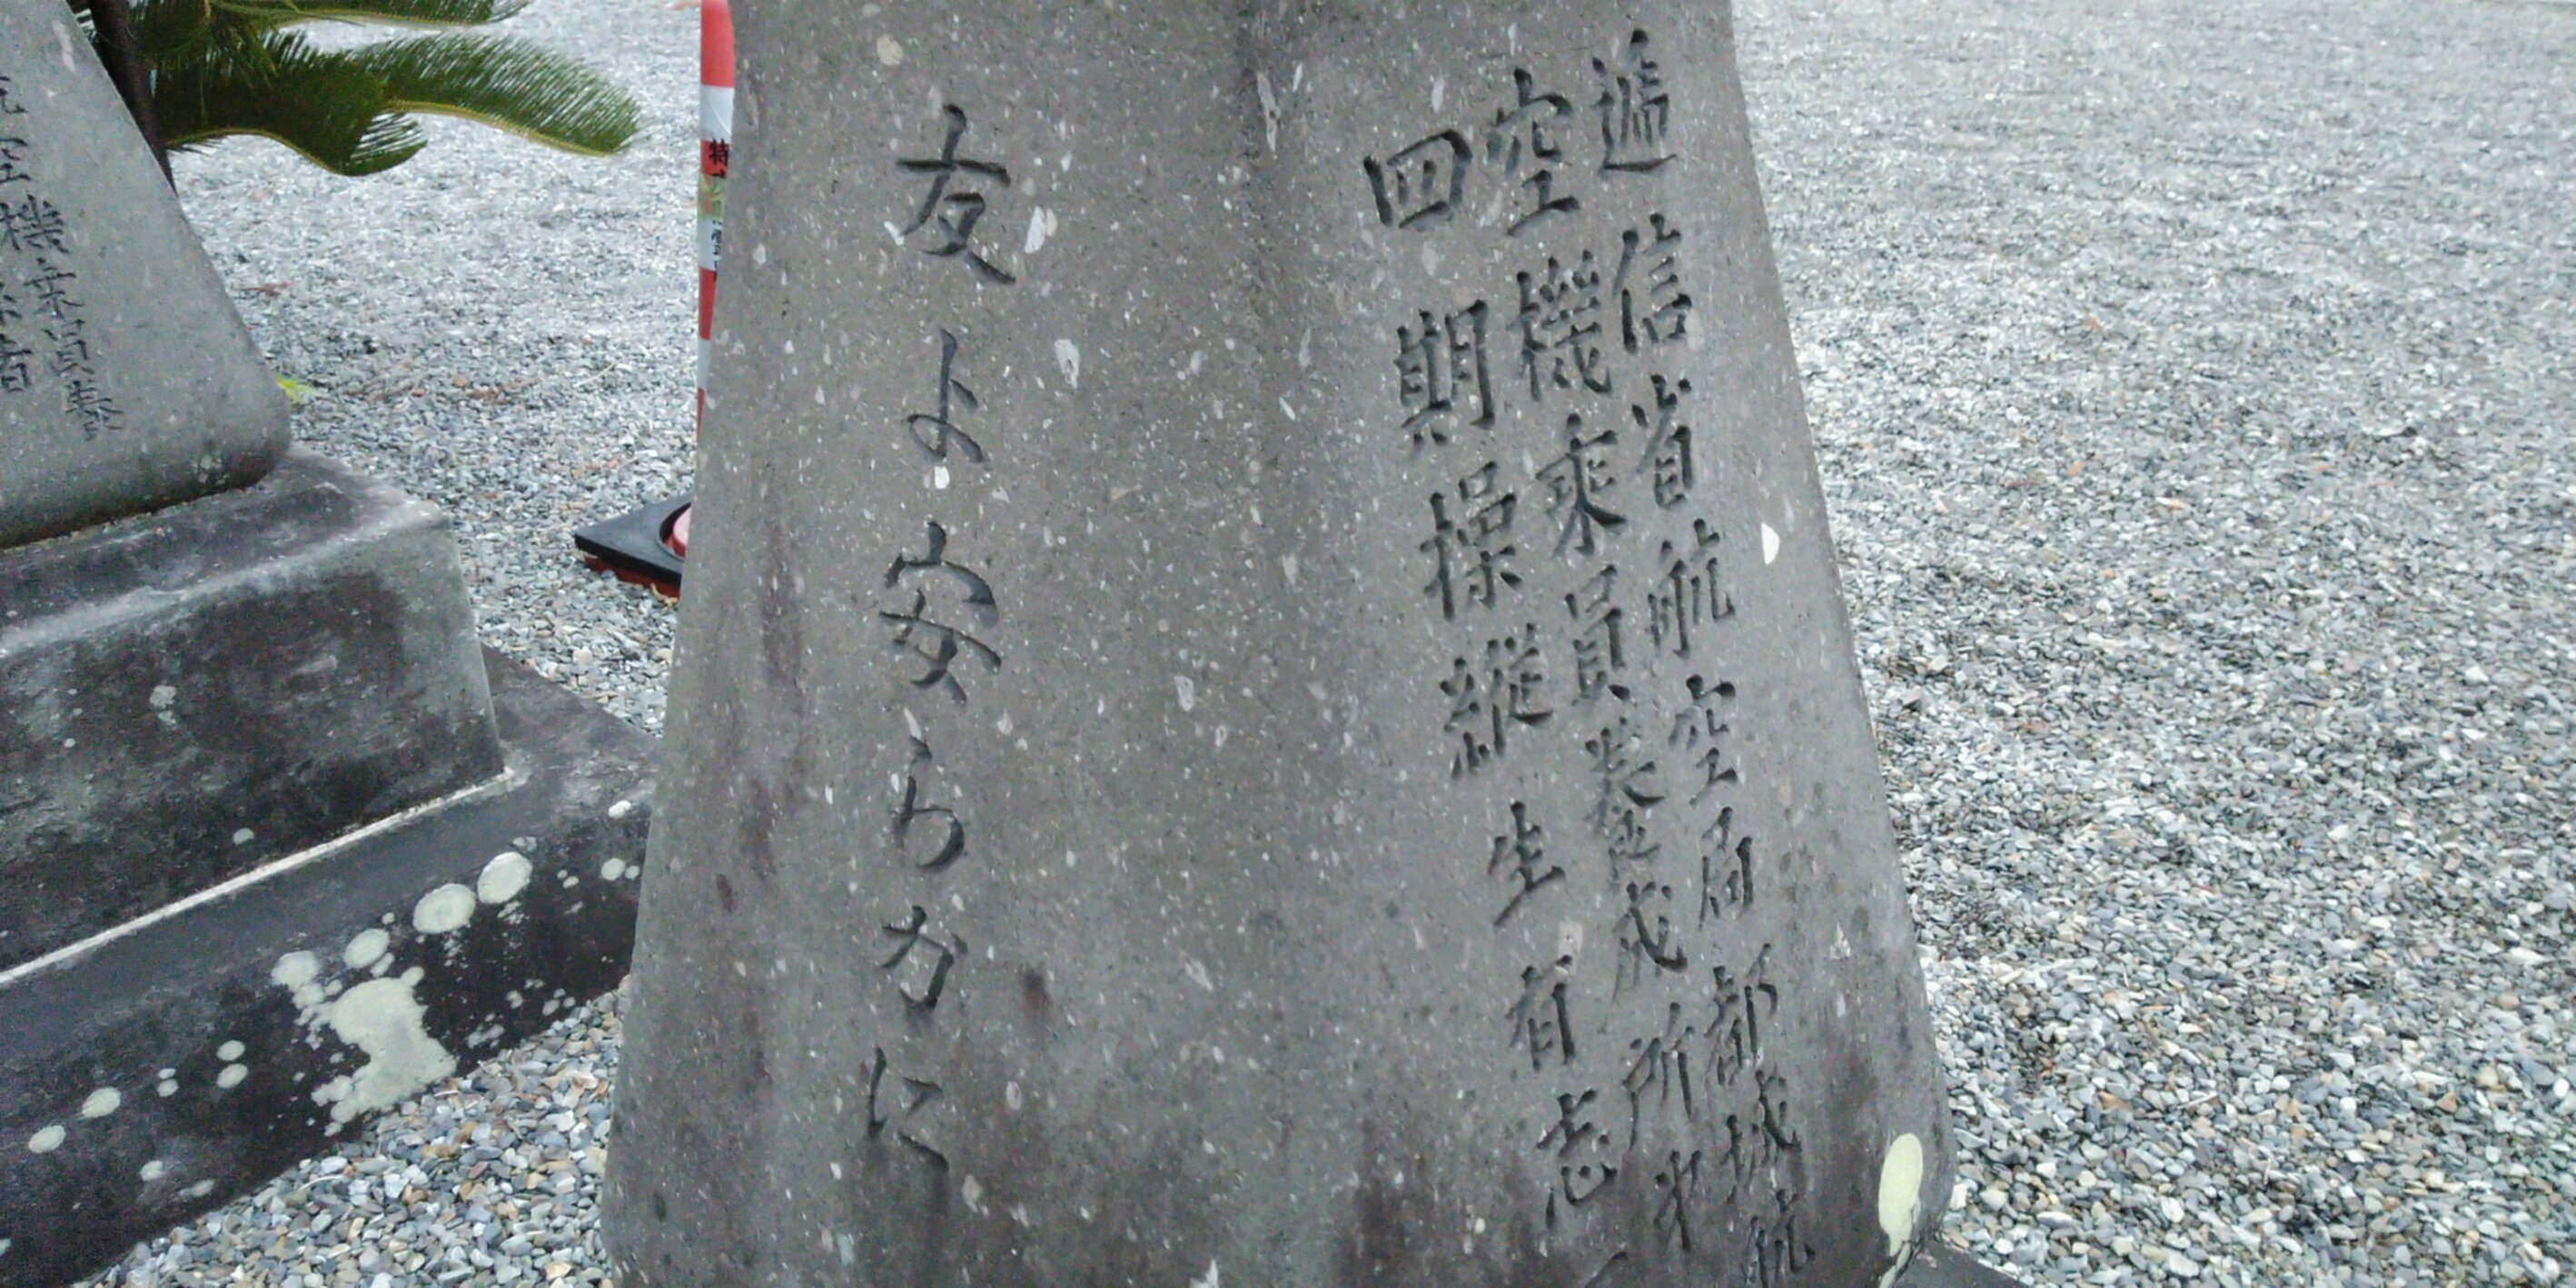 遞信省航空局都城航
空機乘員養成所米
四期操縦生有志
友よ安らかに
空機乗員養